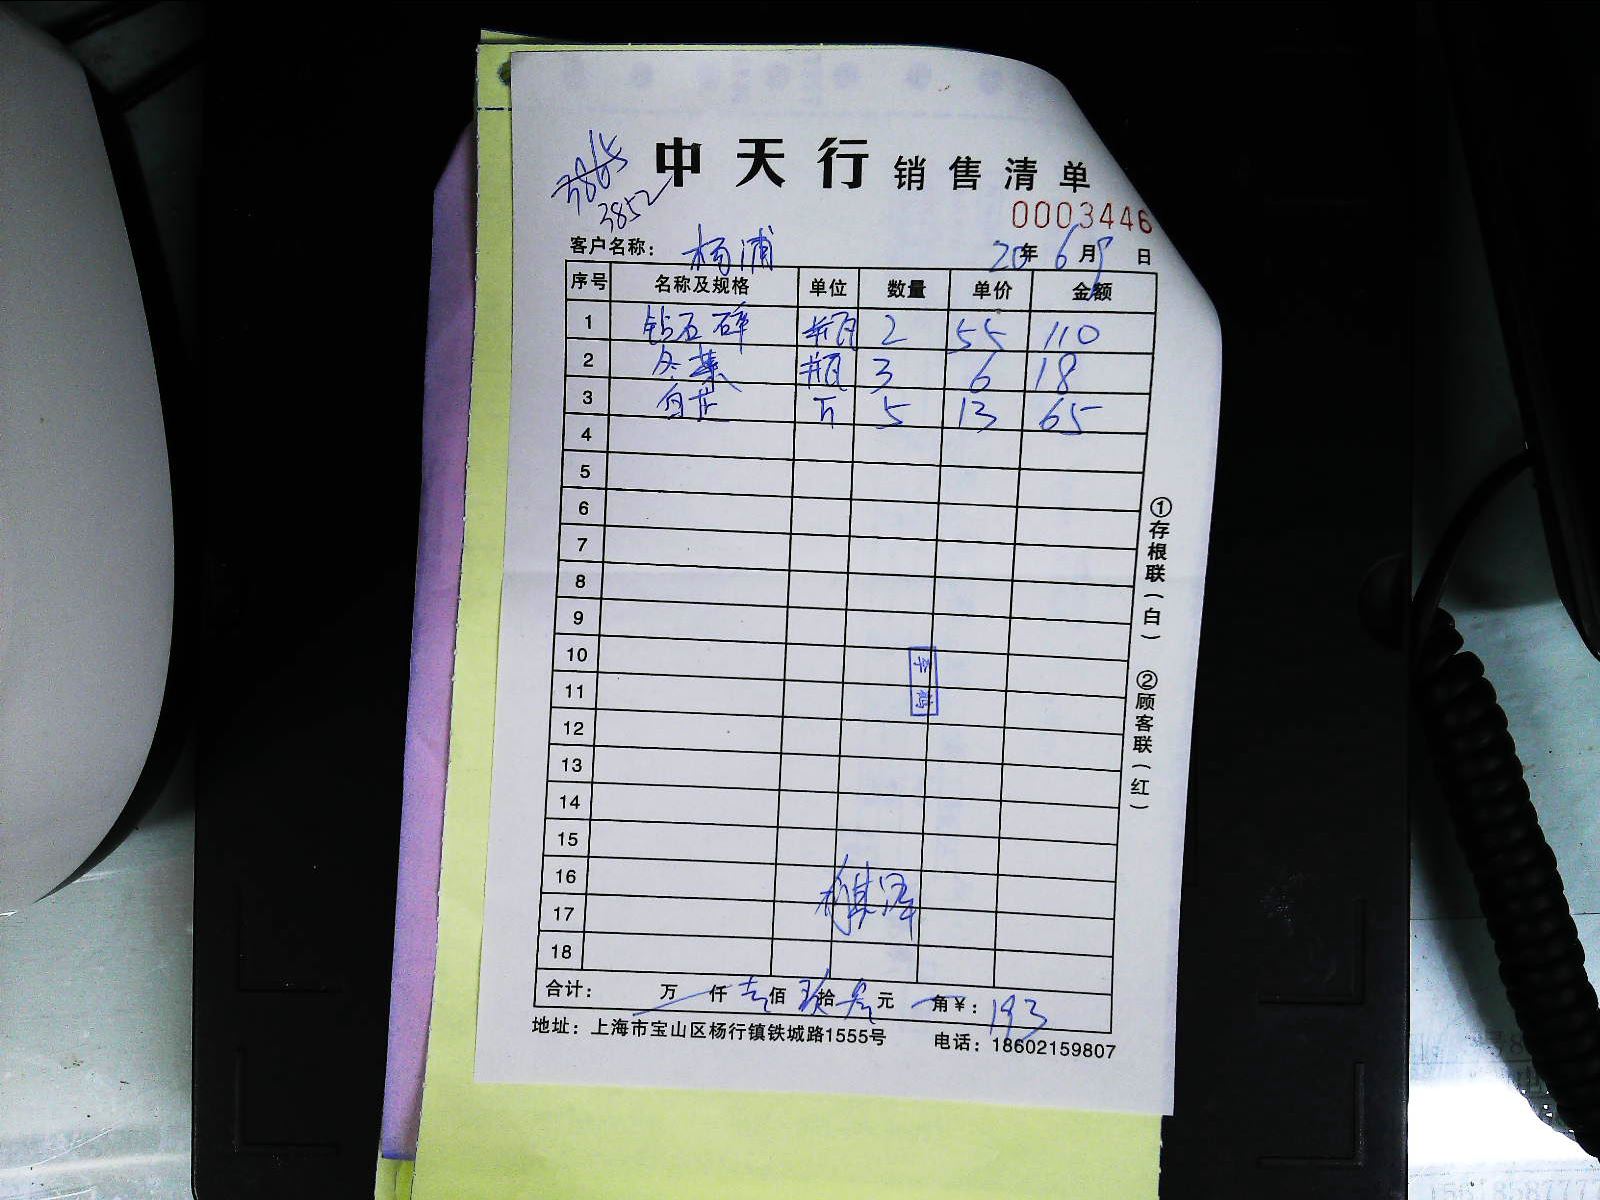 3865
3852
中天行 销售清单
0003446
客户名称： 杨浦 20年 6月 9日
序号 名称及规格 单位 数量 单价 金额
1 钻石碎 瓶 2 55 110
2 冬菜 瓶 3 6 18
3 白芷 斤 5 13 65
4
5
6
7
8
9
10
11
12
13
14
15
16
17
18
合计： 万 仟 壹佰 玖拾 叁元 角￥： 193
地址：上海市宝山区杨行镇铁城路1555号 电话：18602159807
①存根联（白） ②顾客联（红）